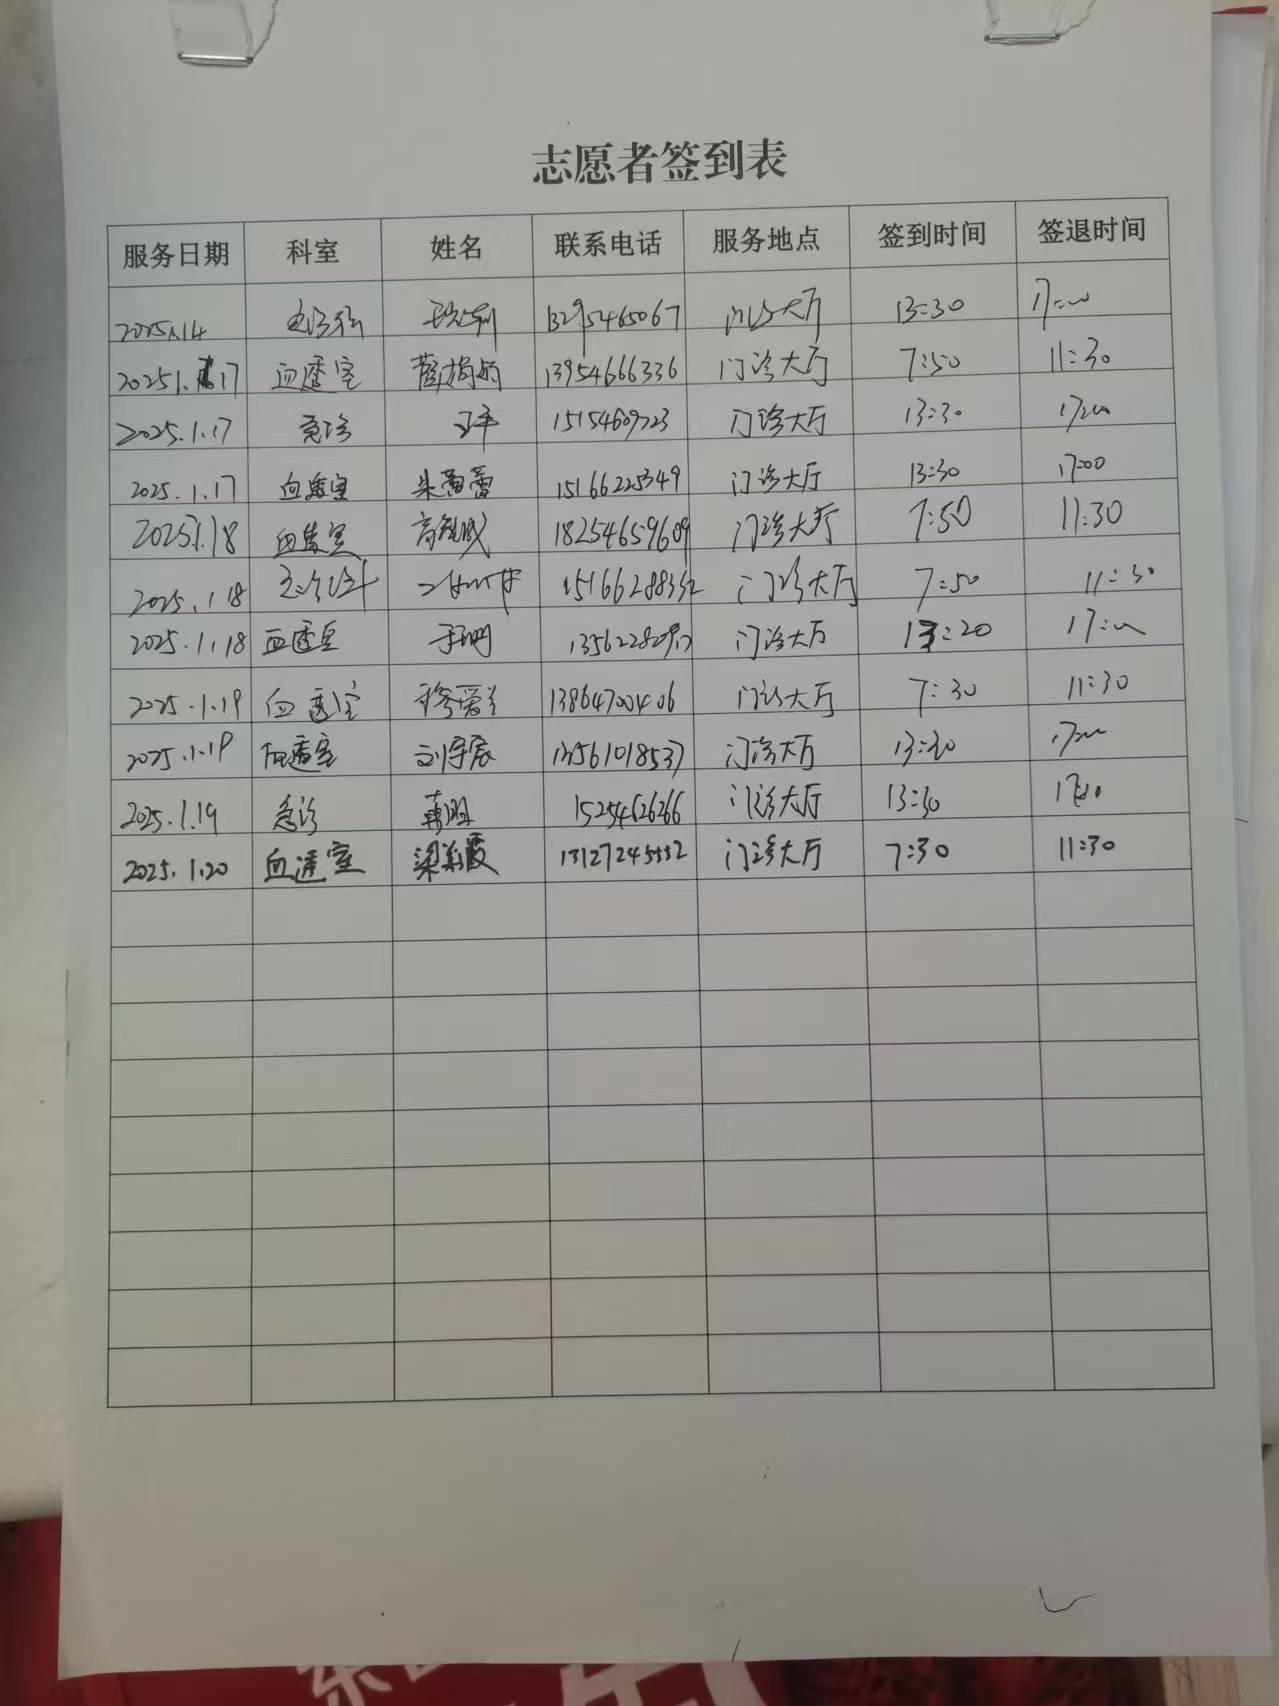 志愿者签到表
服务日期 科室 姓名 联系电话 服务地点 签到时间 签退时间
2025.1.14 13295465067 门诊大厅 13:30 17:00
2025.1.17 血透室 13954666336 门诊大厅 7:50 11:30
2025.1.17 急诊 15154609723 门诊大厅 13:30 17:00
2025.1.17 血透室 朱蕾蕾 15166225349 门诊大厅 13:30 17:00
2025.1.18 血透室 18254659609 门诊大厅 7:50 11:30
2025.1.18 15166288332 门诊大厅 7:50 11:30
2025.1.18 血透室 于珊 门诊大厅 13:20 17:00
2025.1.19 血透室 13864700406 门诊大厅 7:30 11:30
2025.1.19 血透室 刘宇辰 13561018537 门诊大厅 13:30 17:00
2025.1.19 急诊 15254626266 门诊大厅 13:30
2025.1.20 血透室 梁美霞 13127245552 门诊大厅 7:30 11:30